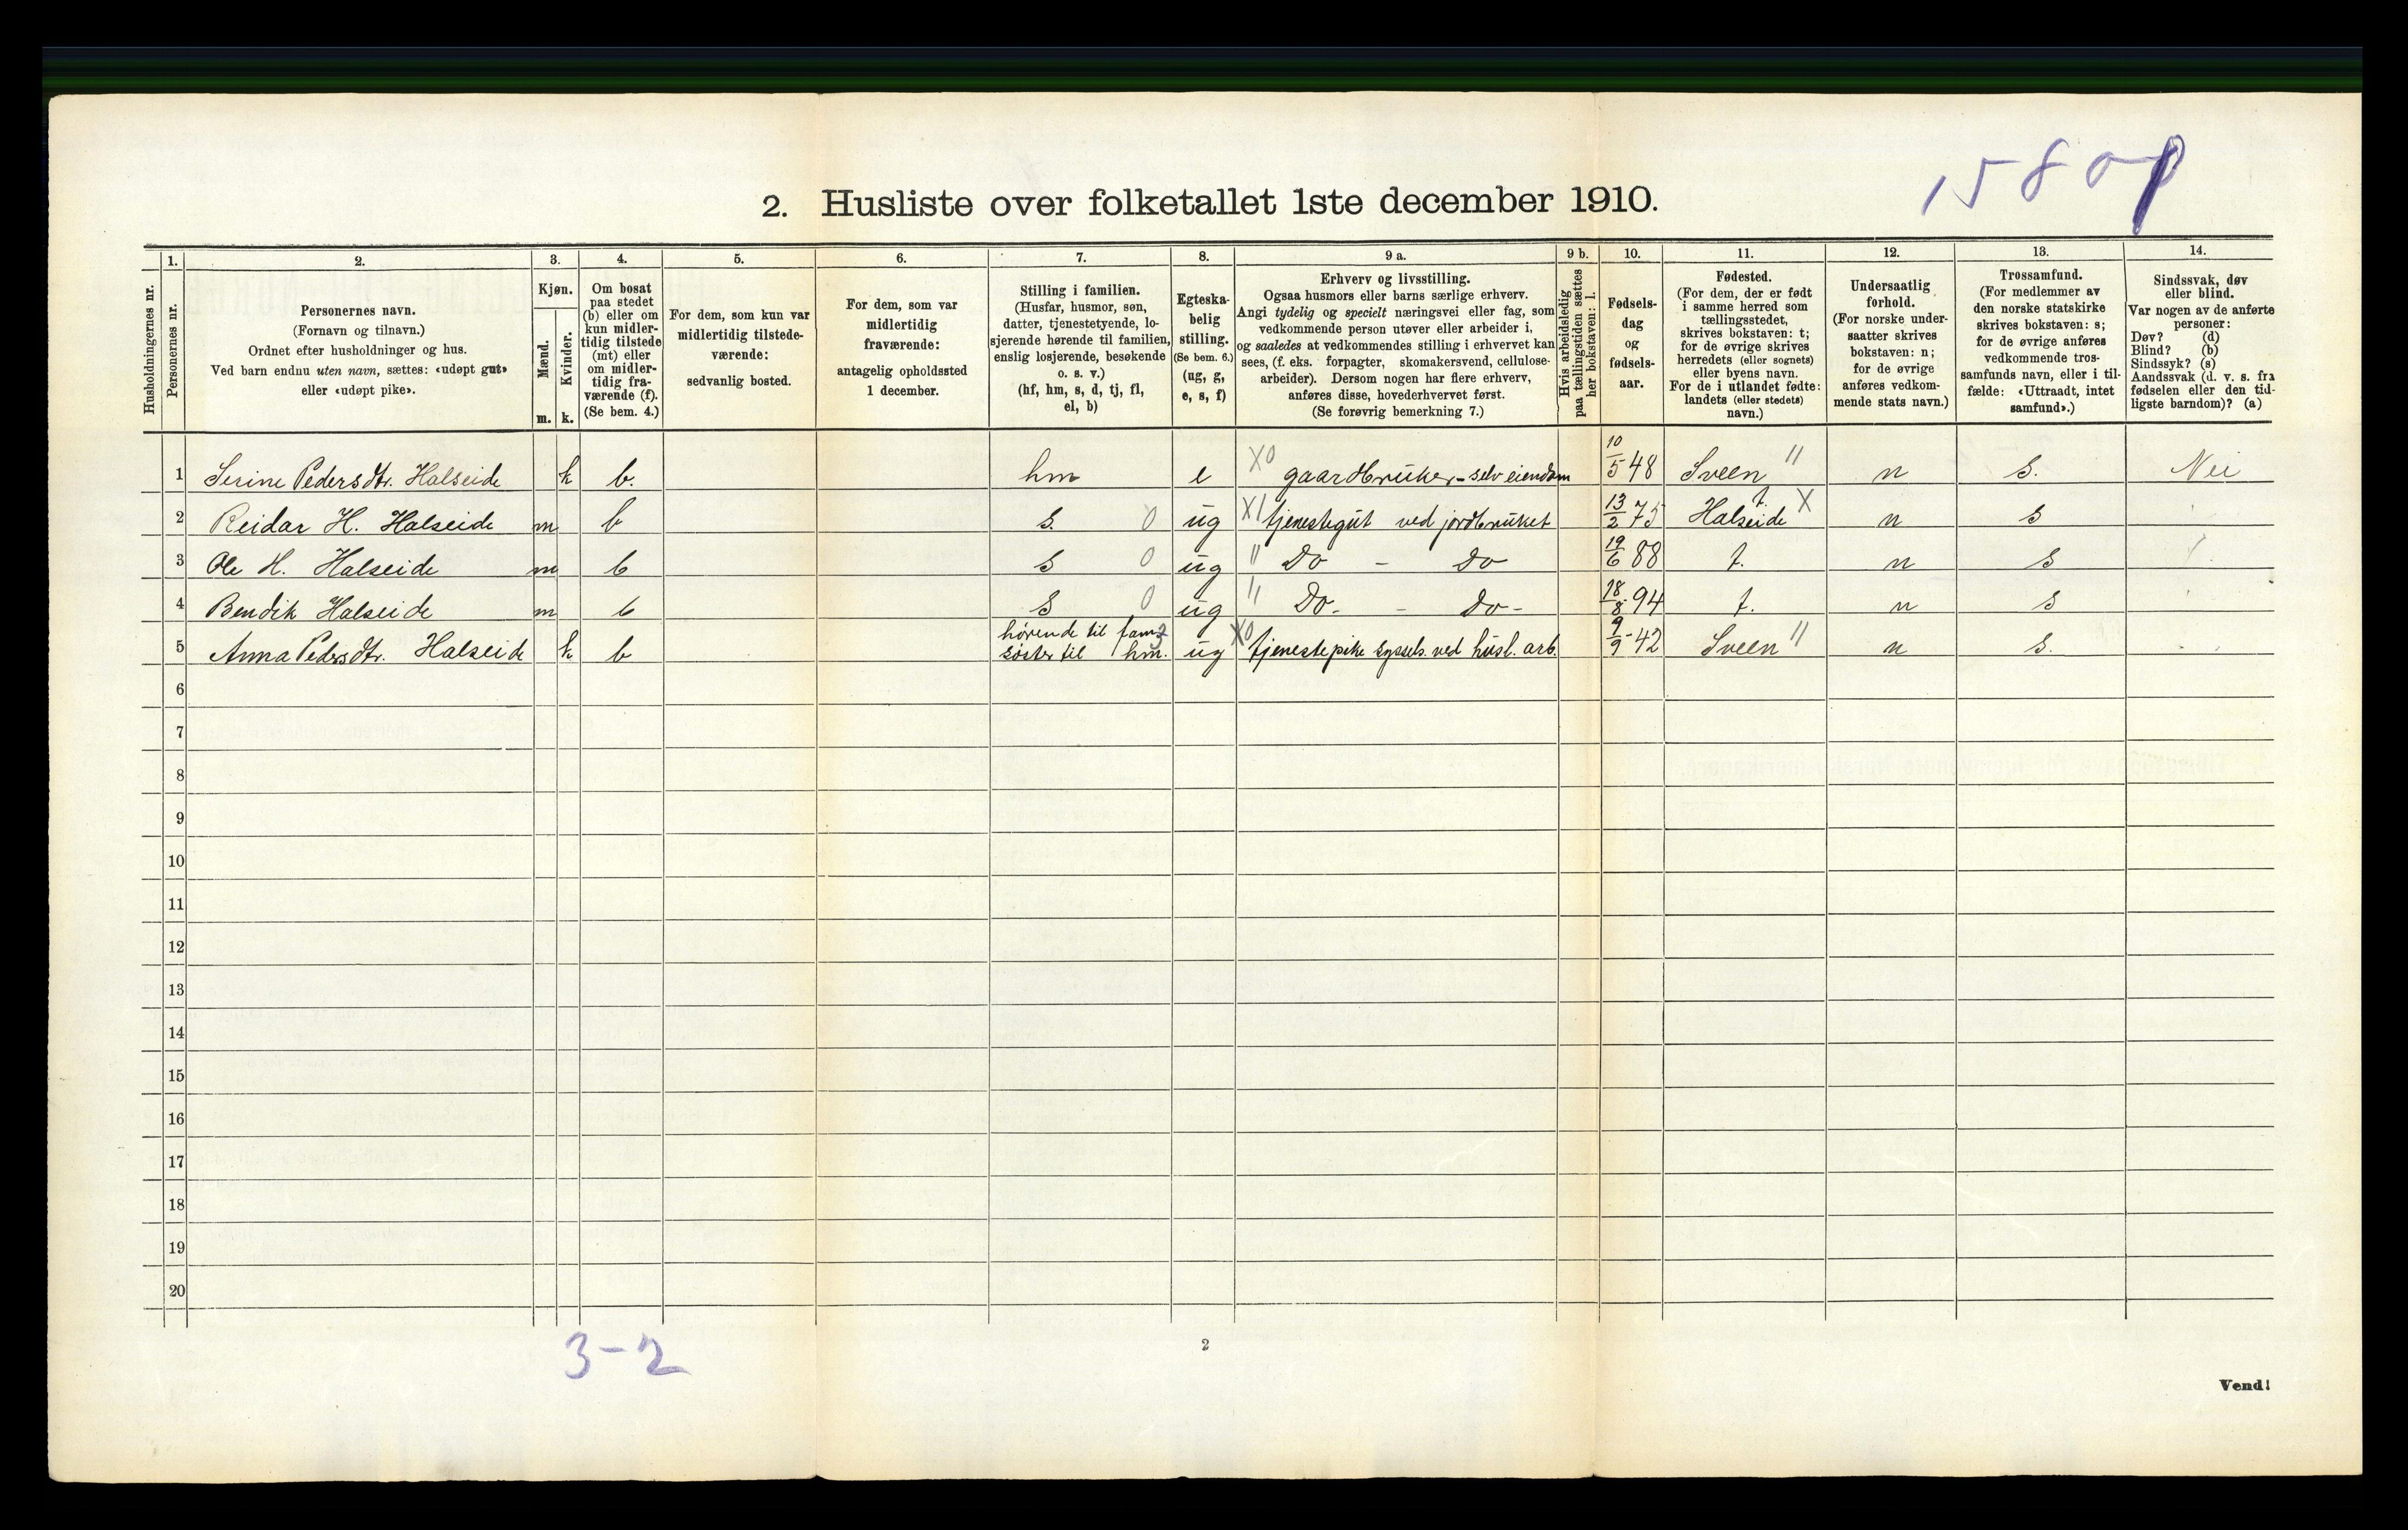 1580
2. Husliste over folketallet 1ste december 1910.
Husholdningernes nr.
1.
Personernes nr.
2.
Personernes navn.
(Fornavn og tilnavn.)
Ordnet efter husholdninger og hus.
Ved barn endnu uten navn, sættes: «udøpt gut»
eller «udøpt pike».
3.
Kjøn.
Mænd.
Kvinder.
m. k.
4.
Om bosat
paa stedet
(b) eller om
kun midler-
tidig tilstede
(mt) eller
om midler-
tidig fra-
værende (f).
(Se bem. 4.)
5.
For dem, som kun var
midlertidig tilstede-
værende:
sedvanlig bosted.
6.
For dem, som var
midlertidig
fraværende:
antagelig opholdssted
1 december.
7.
Stilling i familien.
(Husfar, husmor, søn,
datter, tjenestetyende, lo-
sjerende hørende til familien,
enslig losjerende, besøkende
o. s. v.)
(hf, hm, s, d, tj, fl,
el, b)
8.
Egteska-
belig
stilling.
(Se bem. 6.)
(ug, g,
e, s, f)
9 a.
Erhverv og livsstilling.
Ogsaa husmors eller barns særlige erhverv.
Angi tydelig og specielt næringsvei eller fag, som
vedkommende person utøver eller arbeider i,
og saaledes at vedkommendes stilling i erhvervet kan
sees, (f. eks. forpagter, skomakersvend, cellulose-
arbeider). Dersom nogen har flere erhverv,
anføres disse, hovederhvervet først.
(Se forøvrig bemerkning 7.)
9 b.
Hvis arbeidsledig
paa tællingstiden sættes
her bokstaven: l.
10.
Fødsels-
dag
og
fødsels-
aar.
11.
Fødested.
(For dem, der er født
i samme herred som
tællingsstedet,
skrives bokstaven: t;
for de øvrige skrives
herredets (eller sognets)
eller byens navn.
For de i utlandet fødte:
landets (eller stedets)
navn.)
12.
Undersaatlig
forhold.
(For norske under-
saatter skrives
bokstaven: n;
for de øvrige
anføres vedkom-
mende stats navn.)
13.
Trossamfund.
(For medlemmer av
den norske statskirke
skrives bokstaven: s;
for de øvrige anføres
vedkommende tros-
samfunds navn, eller i til-
fælde: «Uttraadt, intet
samfund».)
14.
Sindssvak, døv
eller blind.
Var nogen av de anførte
personer:
Døv? (d)
Blind? (b)
Sindssyk? (s)
Aandssvak (d. v. s. fra
fødselen eller den tid-
ligste barndom)? (a)
1 Serine Pedersdtr. Halseide k b. hm e X0 gaardbruker - selveiendom 10/5 48 Sveen " n s. Nei
2 Reidar H. Halseide m b s. 0 ug X1 tjenestegut ved jordbruket 13/2 75 Halseide t. X n s
3 Ole H. Halseide m b s 0 ug " Do - Do 19/6 88 t. n s
4 Bendik Halseide m b s 0 ug " Do. - Do - 18/8 94 t. n s
5 Anna Pedersdtr. Halseide k b hørende til fam. søster til hm. ug X0 tjenestepike syssels. ved husl. arb. 9/9 - 42 Sveen " n s.
6
7
8
9
10
11
12
13
14
15
16
17
18
19
20
3-2
2
Vend!